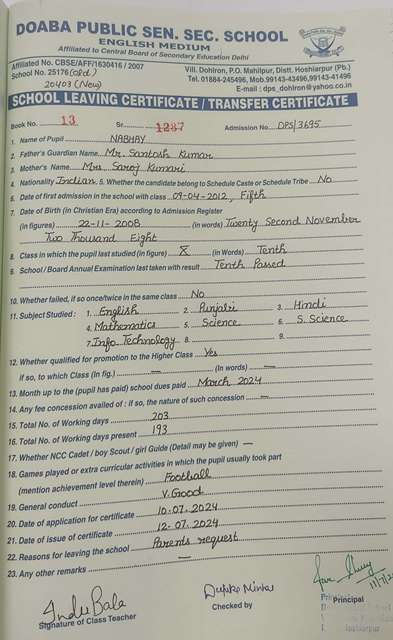 DOABA PUBLIC SEN. SEC. SCHOOL
ENGLISH MEDIUM
Affiliated to Central Board of Secondary Education Delhi
Affiliated No. CBSE/AFF/1630416 / 2007
School No. 25176 (old)
20403 (New)
Vill. Dohiron, P.O. Mahilpur, Distt. Hoshiarpur (Pb.)
Tel. 01884-245496, Mob.99143-43496,99143-41496
E-mail : dps_dohiron@yahoo.co.in
SCHOOL LEAVING CERTIFICATE / TRANSFER CERTIFICATE
Book No. 13 Sr. 1287 Admission No. DPS/3695
1. Name of Pupil NABHAY
2. Father's Guardian Name Mr. Santosh Kumar
3. Mother's Name Mrs Saroj Kumari
4. Nationality Indian 5. Whether the candidate belong to Schedule Caste or Schedule Tribe No
6. Date of first admission in the school with class 09-04-2012, Fifth
7. Date of Birth (in Christian Era) according to Admission Register
(in figures) 22-11-2008 (in words) Twenty Second November
Two Thousand Eight
8. Class in which the pupil last studied (in figure) X (in Words) Tenth
9. School / Board Annual Examination last taken with result Tenth Passed
10. Whether failed, if so once/twice in the same class No
11. Subject Studied : 1. English 2. Punjabi 3. Hindi
4. Mathematics 5. Science 6. S. Science
7. Info. Technology 8. 9.
12. Whether qualified for promotion to the Higher Class Yes
if so, to which Class (in fig.) — (In words) —
13. Month up to the (pupil has paid) school dues paid March 2024
14. Any fee concession availed of : if so, the nature of such concession —
15. Total No. of Working days 203
16. Total No. of Working days present 193
17. Whether NCC Cadet / boy Scout / girl Guide (Detail may be given) —
18. Games played or extra curricular activities in which the pupil usually took part
(mention achievement level therein) Football
19. General conduct V. Good
20. Date of application for certificate 10.07.2024
21. Date of issue of certificate 12-07.2024
22. Reasons for leaving the school Parents request
23. Any other remarks —
Indu Bala
Signature of Class Teacher
Checked by
Principal